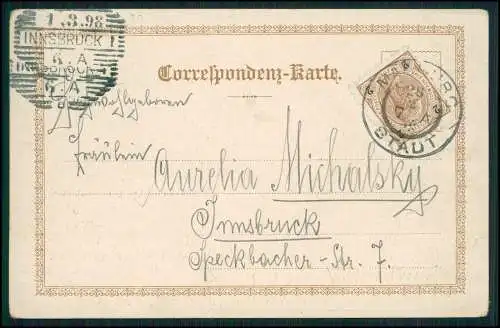 1.3.98
INNSBRUCK 1
Correspondenz-Karte.
STADT
Hochwohlgeboren
Fräulein
Aurelia Michalsky
Innsbruck
Speckbacher-Str. 7.